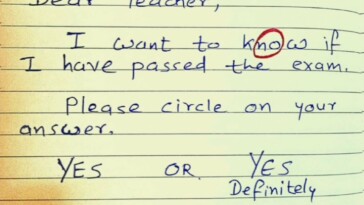 Dear Teacher,
I want to know if
I have passed the exam.
Please circle on your
answer.
YES OR YES
Definitely